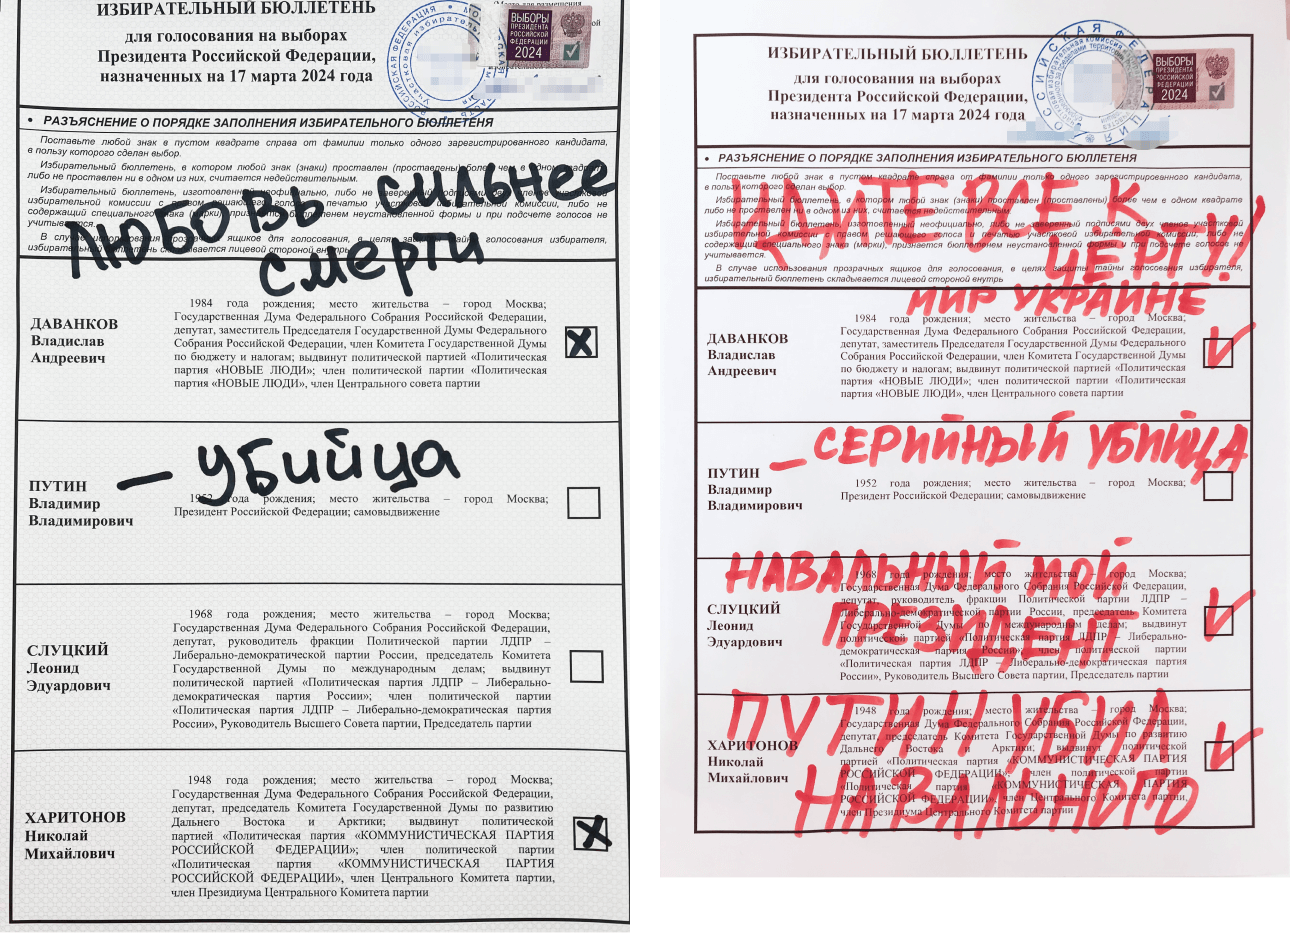 ИЗБИРАТЕЛЬНЫЙ БЮЛЛЕТЕНЬ
для голосования на выборах
Президента Российской Федерации,
назначенных на 17 марта 2024 года
ВЫБОРЫ
ПРЕЗИДЕНТА
РОССИЙСКОЙ
ФЕДЕРАЦИИ
2024
• РАЗЪЯСНЕНИЕ О ПОРЯДКЕ ЗАПОЛНЕНИЯ ИЗБИРАТЕЛЬНОГО БЮЛЛЕТЕНЯ
Поставьте любой знак в пустом квадрате справа от фамилии только одного зарегистрированного кандидата,
в пользу которого сделан выбор.
Избирательный бюллетень, в котором любой знак (знаки) проставлен (проставлены) более чем в одном квадрате
либо не проставлен ни в одном из них, считается недействительным.
Избирательный бюллетень, изготовленный неофициально, либо не заверенный
избирательной комиссии с печатью комиссии, либо не
содержащий специального знака (марки), признается бюллетенем неустановленной формы и при подсчете голосов не
учитывается.
В случае использования прозрачных ящиков для голосования, в целях защиты тайны голосования избирателя,
избирательный бюллетень складывается лицевой стороной внутрь
ЛЮБОВЬ сильнее
смерти
ДАВАНКОВ
Владислав
Андреевич
1984 года рождения; место жительства – город Москва;
Государственная Дума Федерального Собрания Российской Федерации,
депутат, заместитель Председателя Государственной Думы Федерального
Собрания Российской Федерации, член Комитета Государственной Думы
по бюджету и налогам; выдвинут политической партией «Политическая
партия «НОВЫЕ ЛЮДИ»; член политической партии «Политическая
партия «НОВЫЕ ЛЮДИ», член Центрального совета партии
ПУТИН
Владимир
Владимирович
– убийца
1952 года рождения; место жительства – город Москва;
Президент Российской Федерации; самовыдвижение
СЛУЦКИЙ
Леонид
Эдуардович
1968 года рождения; место жительства – город Москва;
Государственная Дума Федерального Собрания Российской Федерации,
депутат, руководитель фракции Политической партии ЛДПР –
Либерально-демократической партии России, председатель Комитета
Государственной Думы по международным делам; выдвинут
политической партией «Политическая партия ЛДПР – Либерально-
демократическая партия России»; член политической партии
«Политическая партия ЛДПР – Либерально-демократическая партия
России», Руководитель Высшего Совета партии, Председатель партии
ХАРИТОНОВ
Николай
Михайлович
1948 года рождения; место жительства – город Москва;
Государственная Дума Федерального Собрания Российской Федерации,
депутат, председатель Комитета Государственной Думы по развитию
Дальнего Востока и Арктики; выдвинут политической
партией «Политическая партия «КОММУНИСТИЧЕСКАЯ ПАРТИЯ
РОССИЙСКОЙ ФЕДЕРАЦИИ»; член политической партии
«Политическая партия «КОММУНИСТИЧЕСКАЯ ПАРТИЯ
РОССИЙСКОЙ ФЕДЕРАЦИИ», член Центрального Комитета партии,
член Президиума Центрального Комитета партии
ИЗБИРАТЕЛЬНЫЙ БЮЛЛЕТЕНЬ
для голосования на выборах
Президента Российской Федерации,
назначенных на 17 марта 2024 года
ВЫБОРЫ
ПРЕЗИДЕНТА
РОССИЙСКОЙ
ФЕДЕРАЦИИ
2024
• РАЗЪЯСНЕНИЕ О ПОРЯДКЕ ЗАПОЛНЕНИЯ ИЗБИРАТЕЛЬНОГО БЮЛЛЕТЕНЯ
Поставьте любой знак в пустом квадрате справа от фамилии только одного зарегистрированного кандидата,
в пользу которого сделан выбор.
Избирательный бюллетень, в котором любой знак (знаки) проставлен (проставлены) более чем в одном квадрате
либо не проставлен ни в одном из них, считается недействительным.
Избирательный бюллетень, изготовленный неофициально, либо не заверенный подписями двух членов участковой
избирательной комиссии с правом решающего голоса и печатью участковой избирательной комиссии, либо не
содержащий специального знака (марки), признается бюллетенем неустановленной формы и при подсчете голосов не
учитывается.
В случае использования прозрачных ящиков для голосования, в целях защиты тайны голосования избирателя,
избирательный бюллетень складывается лицевой стороной внутрь
ИДИТЕ ВСЕ К
ЧЕРТУ!!
МИР УКРАИНЕ
ДАВАНКОВ
Владислав
Андреевич
1984 года рождения; место жительства – город Москва;
Государственная Дума Федерального Собрания Российской Федерации,
депутат, заместитель Председателя Государственной Думы Федерального
Собрания Российской Федерации, член Комитета Государственной Думы
по бюджету и налогам; выдвинут политической партией «Политическая
партия «НОВЫЕ ЛЮДИ»; член политической партии «Политическая
партия «НОВЫЕ ЛЮДИ», член Центрального совета партии
– СЕРИЙНЫЙ УБИЙЦА
ПУТИН
Владимир
Владимирович
1952 года рождения; место жительства – город Москва;
Президент Российской Федерации; самовыдвижение
НАВАЛЬНЫЙ МОЙ
ПРЕЗИДЕНТ
СЛУЦКИЙ
Леонид
Эдуардович
1968 года рождения; место жительства – город Москва;
Государственная Дума Федерального Собрания Российской Федерации,
депутат, руководитель фракции Политической партии ЛДПР –
Либерально-демократической партии России, председатель Комитета
Государственной Думы по международным делам; выдвинут
политической партией «Политическая партия ЛДПР – Либерально-
демократическая партия России»; член политической партии
«Политическая партия ЛДПР – Либерально-демократическая партия
России», Руководитель Высшего Совета партии, Председатель партии
ПУТИН УБИЛ
НАВАЛЬНОГО
ХАРИТОНОВ
Николай
Михайлович
1948 года рождения; место жительства – город Москва;
Государственная Дума Федерального Собрания Российской Федерации,
депутат, председатель Комитета Государственной Думы по развитию
Дальнего Востока и Арктики; выдвинут политической
партией «Политическая партия «КОММУНИСТИЧЕСКАЯ ПАРТИЯ
РОССИЙСКОЙ ФЕДЕРАЦИИ»; член политической партии
«Политическая партия «КОММУНИСТИЧЕСКАЯ ПАРТИЯ
РОССИЙСКОЙ ФЕДЕРАЦИИ», член Центрального Комитета партии,
член Президиума Центрального Комитета партии